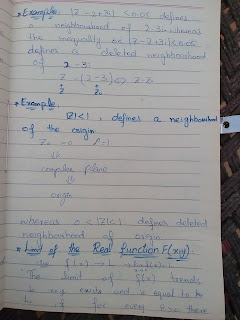 * Example: |Z-2+3i| < 0.05 defines
a neighbourhood of 2-3i whereas
the inequality 0< |Z-2+3i| < 0.05
defines a deleted neighbourhood
of 2-3i
Z - (2-3i) ⇔ Z-Z₀
Z Z₀
* Example:
|Z|<1, defines a neighbourhood
of the origin
Z₀ = 0 r=1
⇓
complex plane
⇓
origin
whereas 0 < |Z| < 1 defines deleted
neighbourhood of origin
* Limit of the Real function F(x,y)
"The limit of f(x) trends
to x₀ exists and is equal to
if for every there